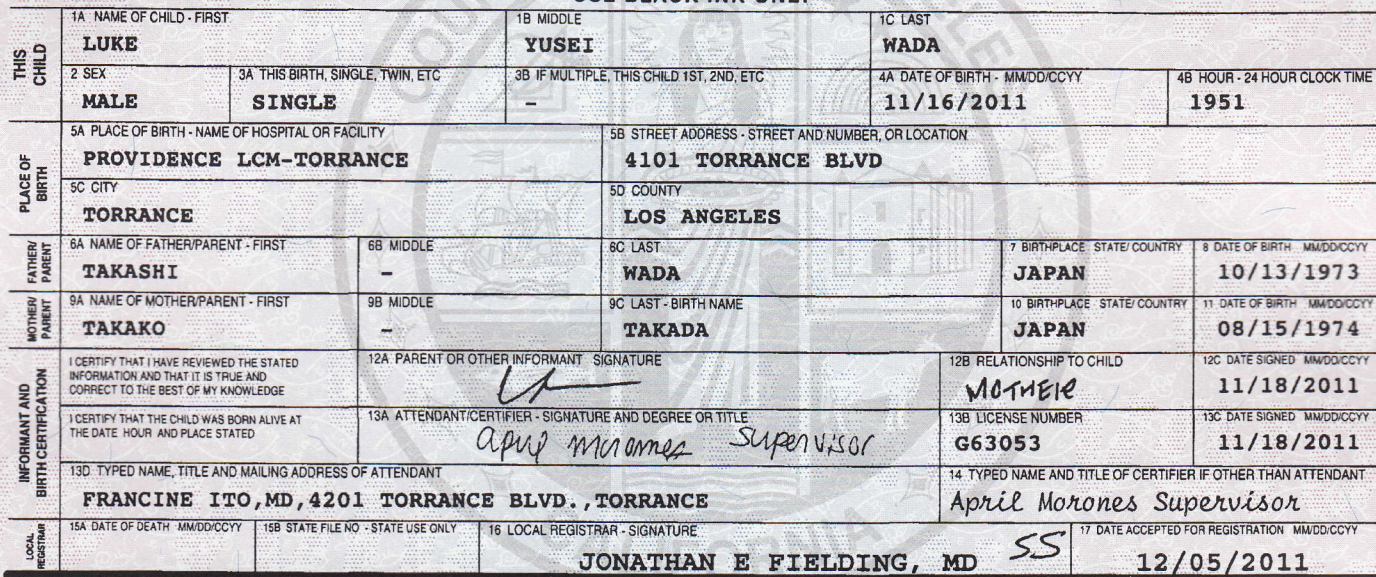 USE BLACK INK ONLY
THIS CHILD
1A NAME OF CHILD - FIRST
LUKE
1B MIDDLE
YUSEI
1C LAST
WADA
2 SEX
MALE
3A THIS BIRTH, SINGLE, TWIN, ETC
SINGLE
3B IF MULTIPLE, THIS CHILD 1ST, 2ND, ETC
-
4A DATE OF BIRTH - MM/DD/CCYY
11/16/2011
4B HOUR - 24 HOUR CLOCK TIME
1951
PLACE OF BIRTH
5A PLACE OF BIRTH - NAME OF HOSPITAL OR FACILITY
PROVIDENCE LCM-TORRANCE
5B STREET ADDRESS - STREET AND NUMBER, OR LOCATION
4101 TORRANCE BLVD
5C CITY
TORRANCE
5D COUNTY
LOS ANGELES
FATHER/ PARENT
6A NAME OF FATHER/PARENT - FIRST
TAKASHI
6B MIDDLE
-
6C LAST
WADA
7 BIRTHPLACE STATE/COUNTRY
JAPAN
8 DATE OF BIRTH MM/DD/CCYY
10/13/1973
MOTHER/ PARENT
9A NAME OF MOTHER/PARENT - FIRST
TAKAKO
9B MIDDLE
-
9C LAST - BIRTH NAME
TAKADA
10 BIRTHPLACE STATE/COUNTRY
JAPAN
11 DATE OF BIRTH MM/DD/CCYY
08/15/1974
INFORMANT AND BIRTH CERTIFICATION
I CERTIFY THAT I HAVE REVIEWED THE STATED
INFORMATION AND THAT IT IS TRUE AND
CORRECT TO THE BEST OF MY KNOWLEDGE
12A PARENT OR OTHER INFORMANT SIGNATURE
12B RELATIONSHIP TO CHILD
MOTHER
12C DATE SIGNED MM/DD/CCYY
11/18/2011
I CERTIFY THAT THE CHILD WAS BORN ALIVE AT
THE DATE HOUR AND PLACE STATED
13A ATTENDANT/CERTIFIER - SIGNATURE AND DEGREE OR TITLE
April Morones Supervisor
13B LICENSE NUMBER
G63053
13C DATE SIGNED MM/DD/CCYY
11/18/2011
13D TYPED NAME, TITLE AND MAILING ADDRESS OF ATTENDANT
FRANCINE ITO,MD,4201 TORRANCE BLVD.,TORRANCE
14 TYPED NAME AND TITLE OF CERTIFIER IF OTHER THAN ATTENDANT
April Morones Supervisor
LOCAL REGISTRAR
15A DATE OF DEATH MM/DD/CCYY
15B STATE FILE NO - STATE USE ONLY
16 LOCAL REGISTRAR - SIGNATURE
JONATHAN E FIELDING, MD SS
17 DATE ACCEPTED FOR REGISTRATION MM/DD/CCYY
12/05/2011